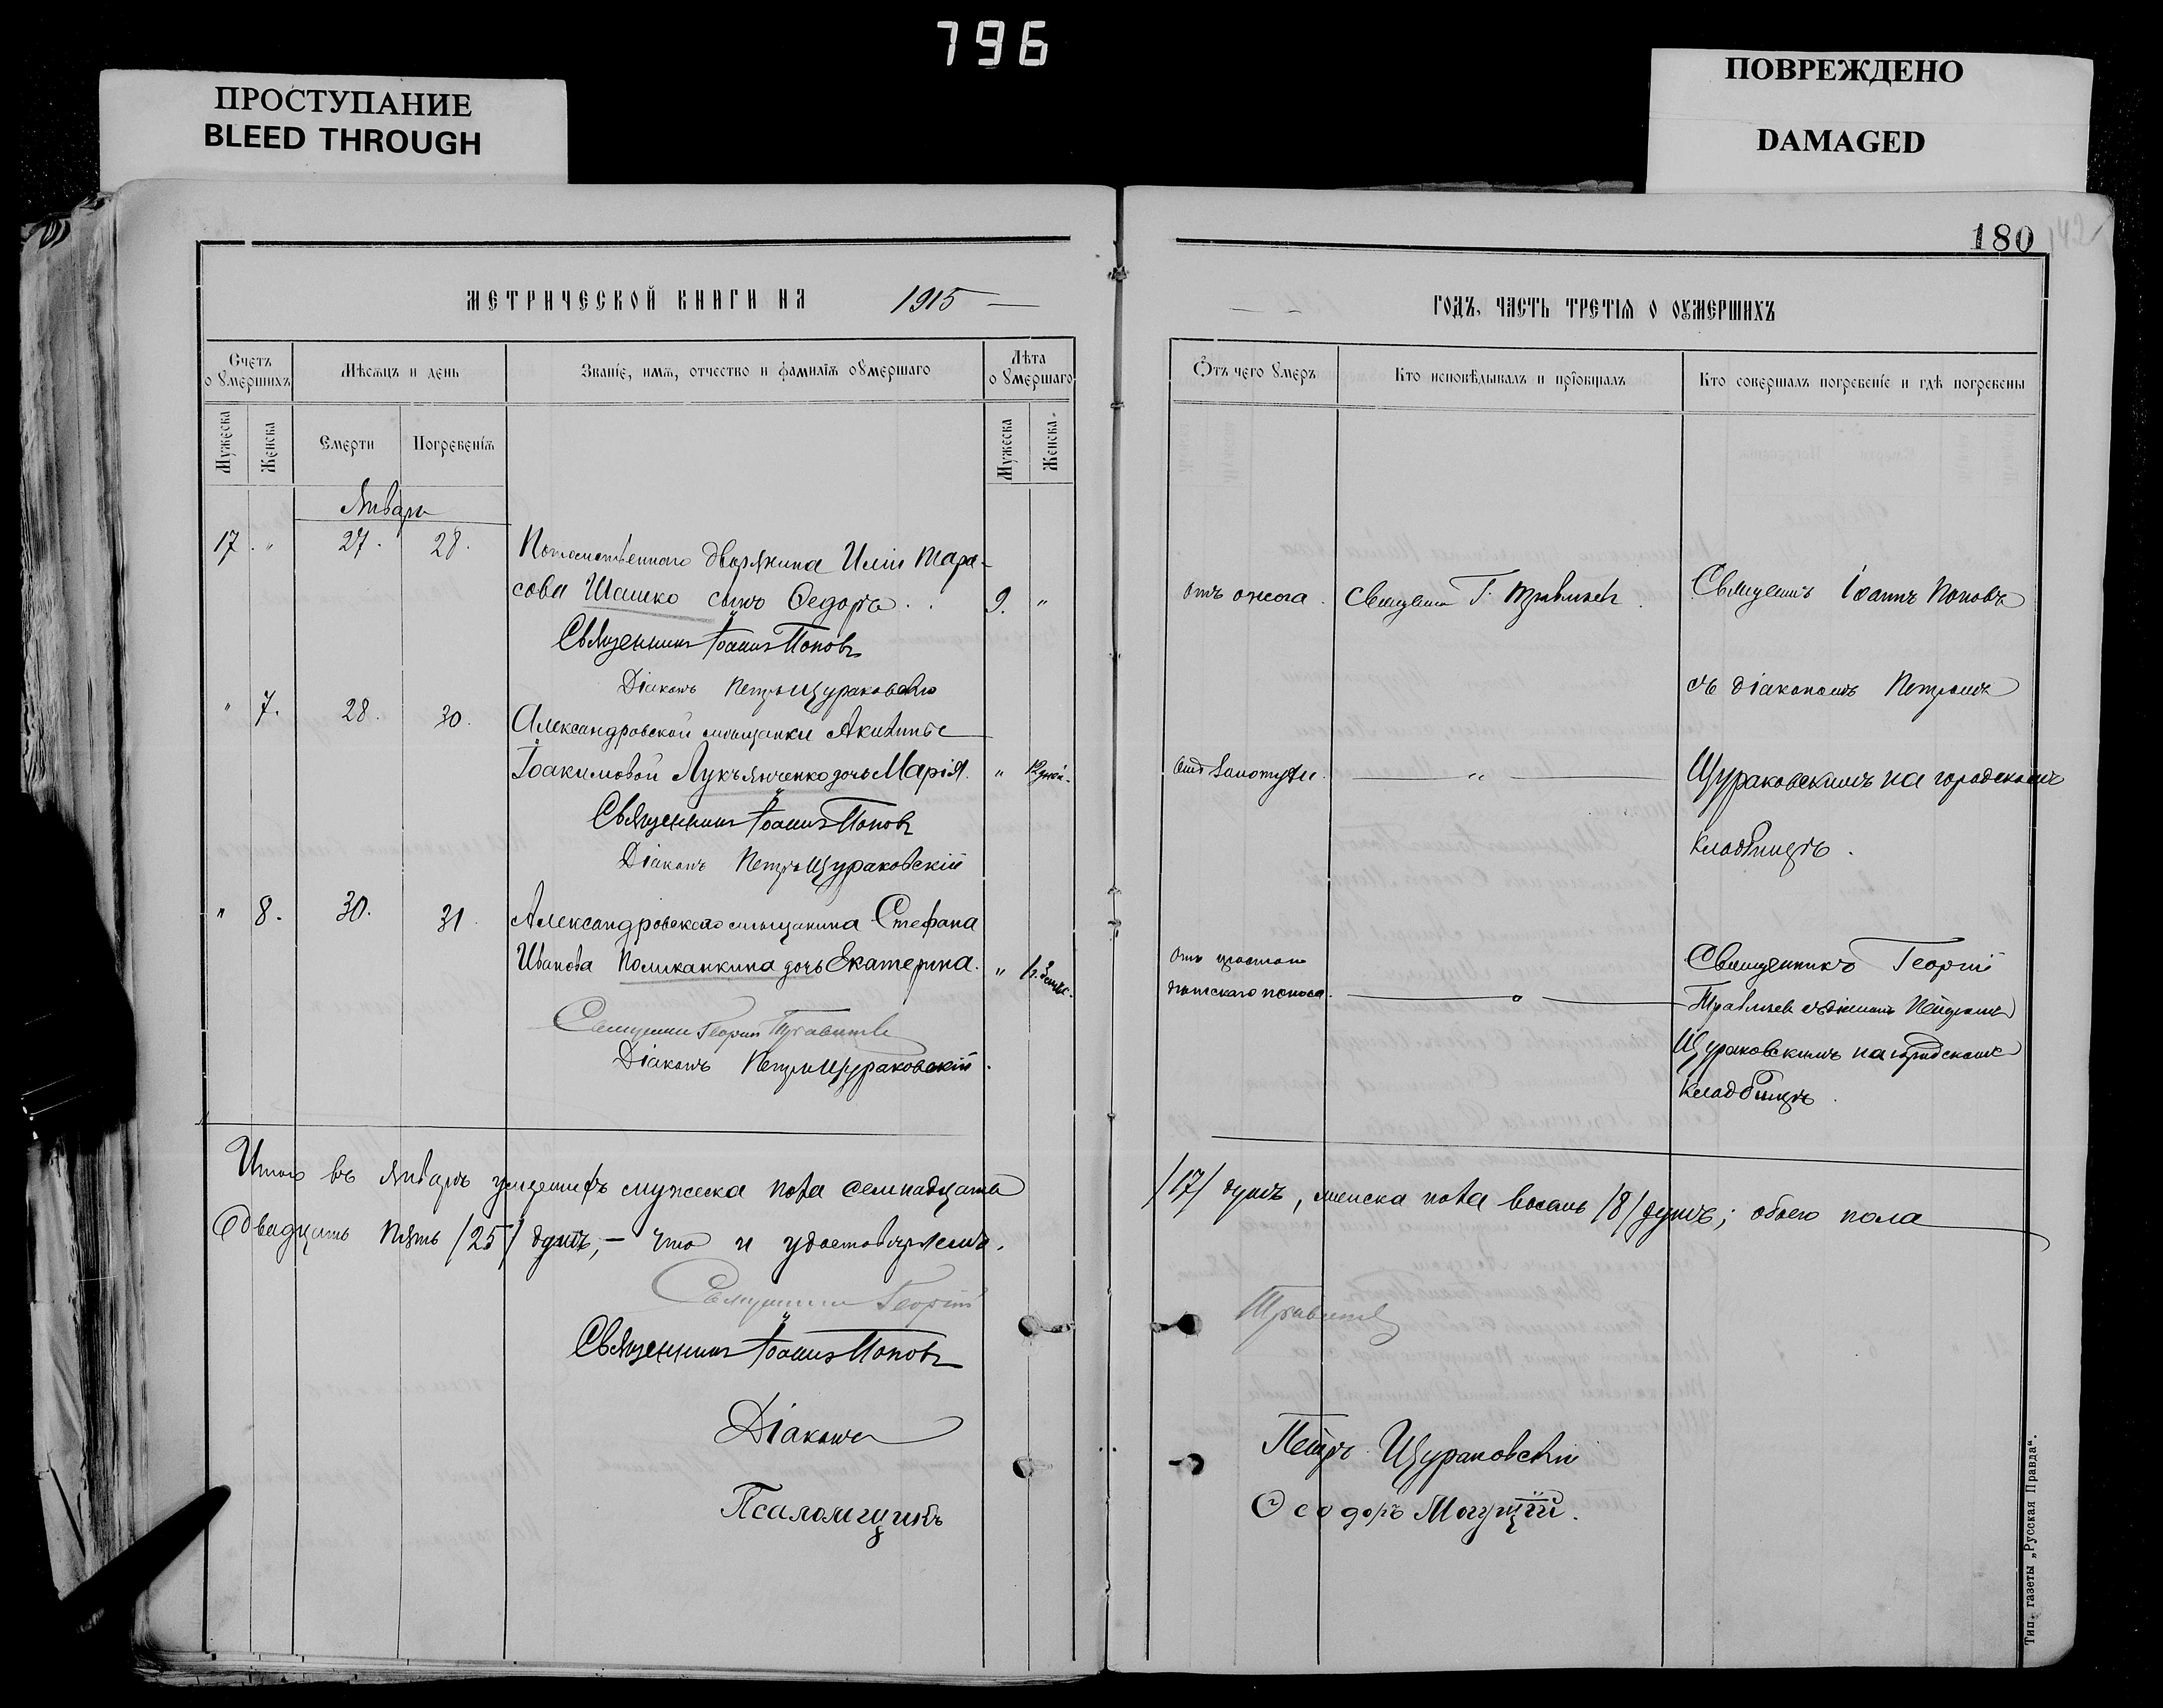 796
ПРОСТУПАНИЕ
BLEED THROUGH
ПОВРЕЖДЕНО
DAMAGED
180
142
МЕТРИЧЕСКОЙ КНИГИ НА 1915
Счетъ оумершихъ
Мѣсяцъ и день
Званіе, имя, отчество и фамилія оумершаго
Лѣта оумершаго
Мужеска
Женска
Смерти
Погребенія
Мужеска
Женска
Январь
17 " 27. 28. Потомственнаго дворянина Иліи Тара-
сова Шашко сынъ Ѳедоръ. 9. "
Священникъ Іоаннъ Поповъ
Діаконъ Петръ Щураковскій
" 7. 28. 30. Александровской мѣщанки Акилины
Іоакимовой Лукъянченко дочь Марія. " 12 дней.
Священникъ Іоаннъ Поповъ
Діаконъ Петръ Щураковскій
" 8. 30. 31. Александровскаго мѣщанина Стефана
Иванова Поликанкина дочь Екатерина. "
Священникъ Георгій Травлѣевъ
Діаконъ Петръ Щураковскій.
Итого въ Январѣ умершихъ мужеска пола семнадцать
двадцать пять /25/ душъ, – что и удостовѣряемъ.
Священникъ Георгій
Священникъ Іоаннъ Поповъ
Діаконъ
Псаломщикъ
ГОДЪ, ЧАСТЬ ТРЕТІЯ О ОУМЕРШИХЪ
Отъ чего умеръ
Кто исповѣдывалъ и пріобщалъ
Кто совершалъ погребеніе и гдѣ погребены
отъ ожога. Священ. Г. Священникъ Іоаннъ Поповъ
съ діакономъ Петромъ
Щураковскимъ на городскомъ
кладбищѣ.
отъ золотухи. "
отъ
дѣтскаго поноса. Священникъ Георгій
съ діакономъ Петромъ
Щураковскимъ на городскомъ
кладбищѣ.
/17/ душъ, женска пола восемь /8/ душъ; обоего пола
Петръ Щураковскій
Ѳеодоръ
Тип. газеты „Русская Правда“.